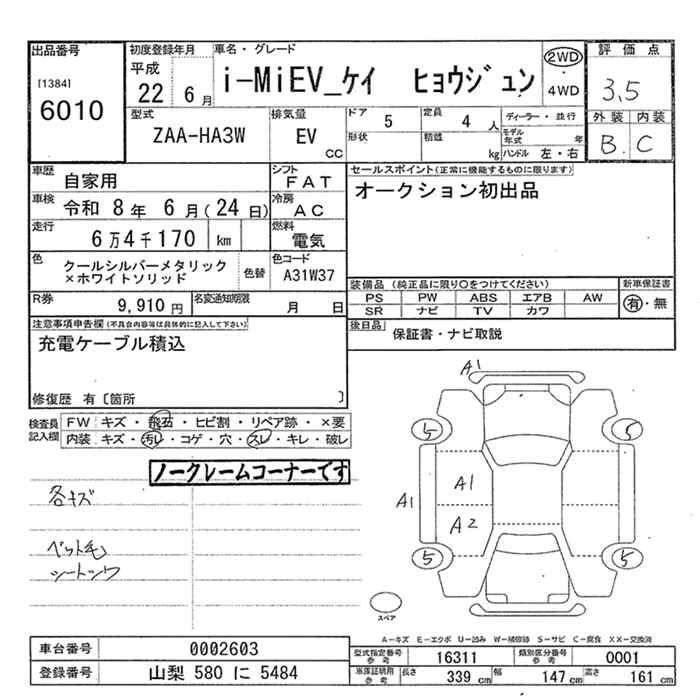 出品番号 初度登録年月 車名・グレード 評価点
[1384] 平成 i-MiEV_ケイ ヒョウジュン 2WD
6010 22 6月 4WD 3.5
型式 排気量 ドア 5 定員 4人 ディーラー・並行 外装 内装
ZAA-HA3W EV CC 形状 積載 kg モデル年式 年 B C
ハンドル 左・右
車歴 自家用 シフト FAT セールスポイント(正常に機能するものに限ります)
車検 令和 8年 6月(24日) 冷房 AC オークション初出品
走行 6万4千170 km 燃料 電気
色 クールシルバーメタリック 色替 色コード
×ホワイトソリッド A31W37 装備品 (純正品に限り〇をつけてください) 新車保証書
R券 9,910円 名変通知期限 月 日 PS PW ABS エアB AW 有・無
SR ナビ TV カワ
注意事項申告欄(不具合内容等は具体的に記入して下さい) 後日品 保証書・ナビ取説
充電ケーブル積込
修復歴 有〔箇所 〕
検査員 FW キズ・飛石・ヒビ割・リペア跡・×要
記入欄 内装 キズ・汚レ・コゲ・穴・スレ・キレ・破レ
ノークレームコーナーです
各キズ
ペット毛
シートシワ
A1
5 5
A1 A1
A2
5 5
スペア
A-キズ E-エクボ U-凹み W-補修跡 S-サビ C-腐食 XX-交換済
車台番号 0002603 型式指定番号 参考 16311 類別区分番号 参考 0001
登録番号 山梨 580 に 5484 車庫証明用 参考 長さ 339cm 幅 147cm 高さ 161cm